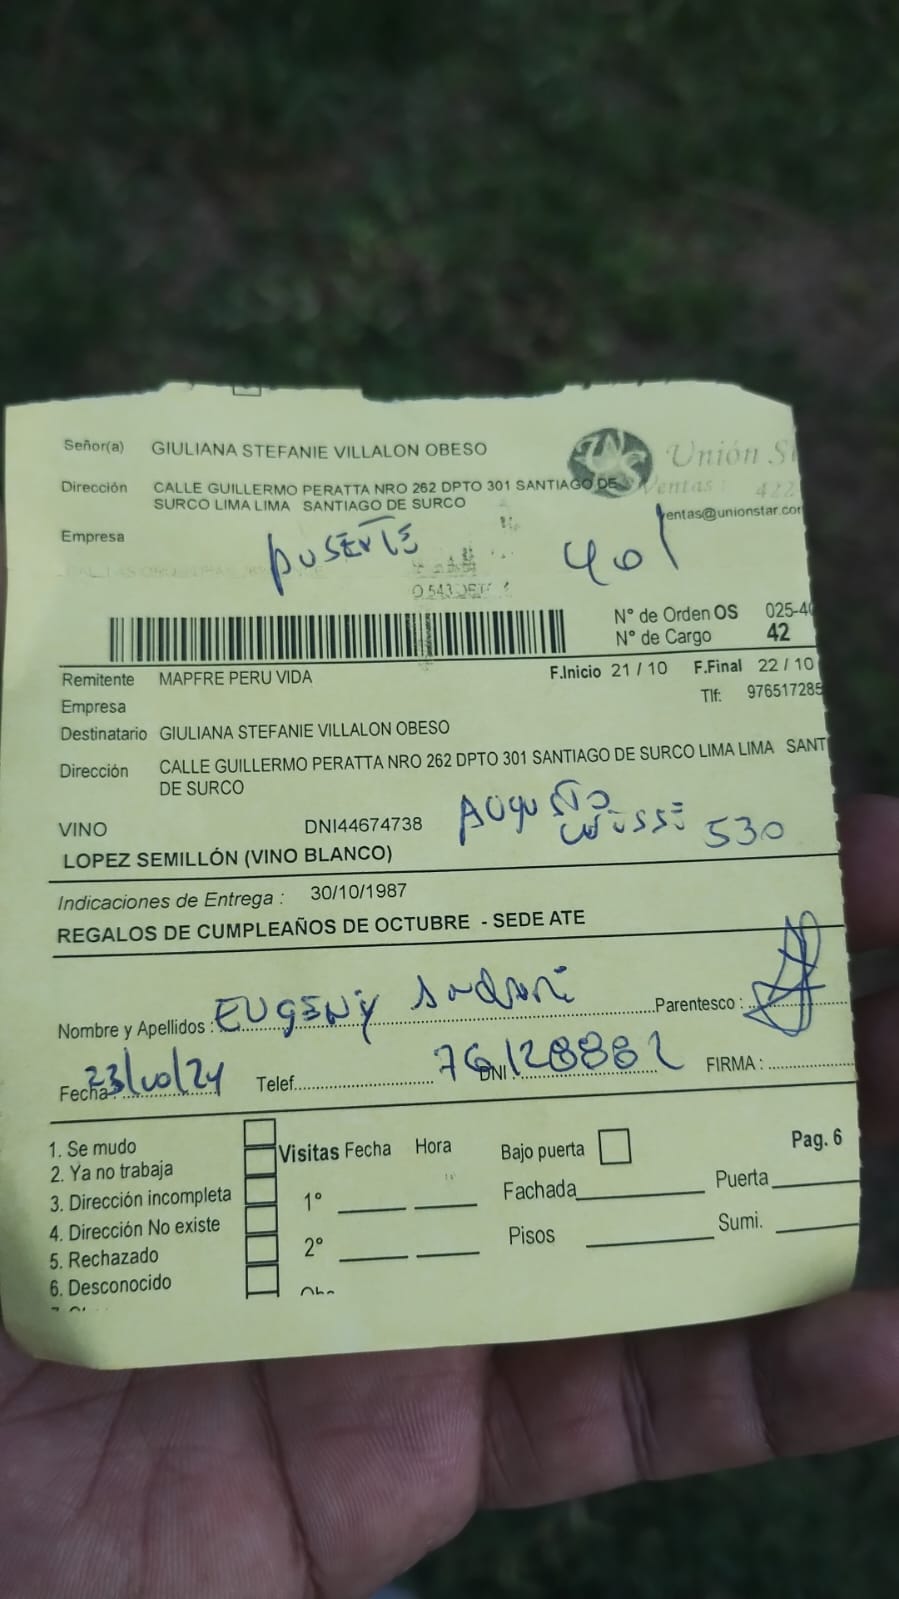 Señor(a) GIULIANA STEFANIE VILLALON OBESO
Unión
Dirección CALLE GUILLERMO PERATTA NRO 262 DPTO 301 SANTIAGO DE
SURCO LIMA LIMA SANTIAGO DE SURCO
Ventas: 422
ventas@unionstar.com
Empresa
401
N° de Orden OS 025-40
N° de Cargo 42
Remitente MAPFRE PERU VIDA F.Inicio 21 / 10 F.Final 22 / 10
Empresa Tlf: 976517285
Destinatario GIULIANA STEFANIE VILLALON OBESO
Dirección CALLE GUILLERMO PERATTA NRO 262 DPTO 301 SANTIAGO DE SURCO LIMA LIMA SANT
DE SURCO
VINO DNI44674738 AUGUSTO
530
LOPEZ SEMILLÓN (VINO BLANCO)
Indicaciones de Entrega : 30/10/1987
REGALOS DE CUMPLEAÑOS DE OCTUBRE - SEDE ATE
Nombre y Apellidos : EUGENY Parentesco :
Fecha: 23/10/24 Telef. DNI: 76128882 FIRMA :
1. Se mudo
2. Ya no trabaja
3. Dirección incompleta
4. Dirección No existe
5. Rechazado
6. Desconocido
Visitas Fecha Hora
1°
2°
Bajo puerta
Pag. 6
Fachada Puerta
Pisos Sumi.